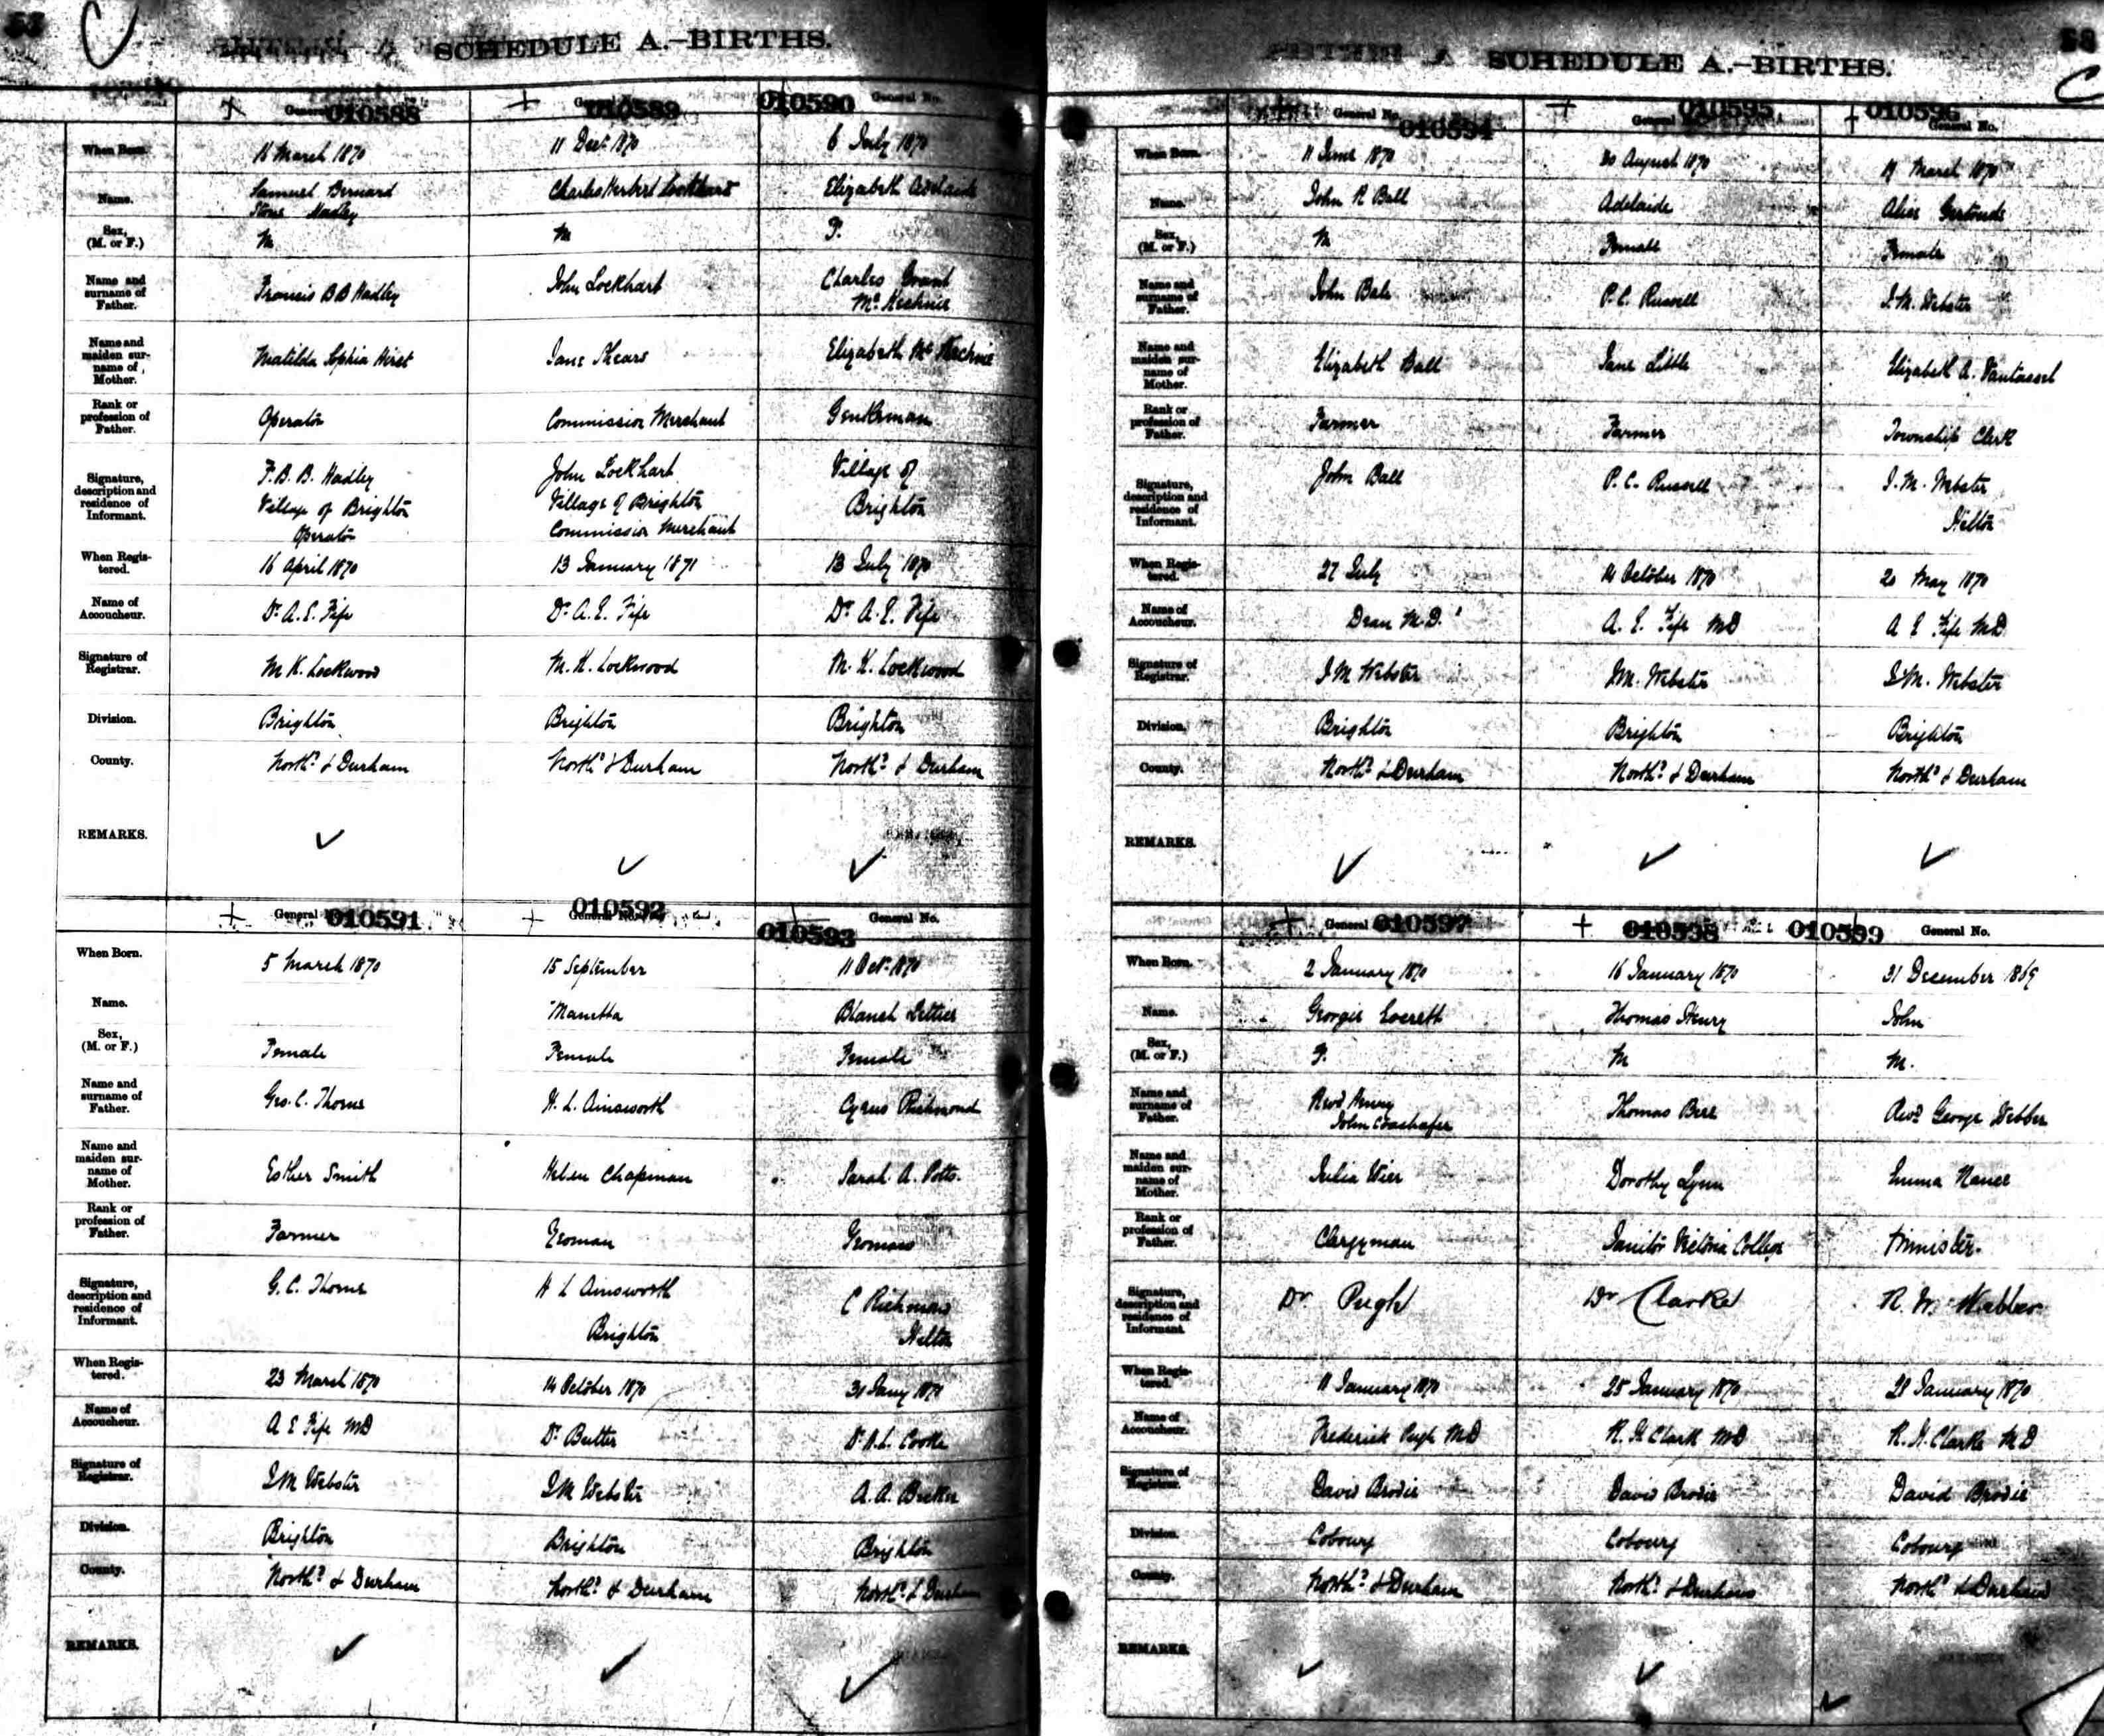 SCHEDULE A.—BIRTHS.
010588 010589 010590 General No.
When Born. 16 March 1870 11 Decr 1870 6 July 1870
Name. Samuel Bernard Charles Herbert Lockhart Elizabeth Adelaide
Stone Hadley
Sex, (M. or F.) M M F.
Name and surname of Father. Francis B B Hadley John Lockhart Charles Grant
McKechnie
Name and maiden surname of Mother. Matilda Sophia Hirst Jane Shears Elizabeth McKechnie
Rank or profession of Father. Operator Commission Merchant Gentleman
Signature, description and residence of Informant. F. B. B. Hadley John Lockhart Village of
Village of Brighton Village of Brighton Brighton
Operator Commission Merchant
When Registered. 16 April 1870 13 January 1871 13 July 1870
Name of Accoucheur. Dr A. E. Fife Dr A. E. Fife Dr A. E. Fife
Signature of Registrar. M K. Lockwood M. K. Lockwood M. K. Lockwood
Division. Brighton Brighton Brighton
County. Northd & Durham Northd & Durham Northd & Durham
REMARKS.
General No. 010591 010592 General No. 010593 General No.
When Born. 5 March 1870 15 September 11 Oct. 1870
Name. Manetta Blanch
Sex, (M. or F.) Female Female Female
Name and surname of Father. Geo. C. Thorne H. L. Ainsworth Cyrus Richmond
Name and maiden surname of Mother. Esther Smith Helen Chapman Sarah A. Potts.
Rank or profession of Father. Farmer Yeoman Yeoman
Signature, description and residence of Informant. G. C. Thorne H L Ainsworth C Richmond
Brighton Hilton
When Registered. 23 March 1870 14 October 1870 31 Jany 1871
Name of Accoucheur. A E Fife MD Dr Butter Dr A. L. Cooke
Signature of Registrar. I M Webster I M Webster A. A. Becker
Division. Brighton Brighton Brighton
County. Northd & Durham Northd & Durham Northd & Durham
REMARKS.
58
SCHEDULE A.—BIRTHS.
General No. 010594 General 010595 010596 General No.
When Born. 11 June 1870 30 August 1870 19 March 1870
Name. John R Ball Adelaide Alice Gertrude
Sex, (M. or F.) M Female Female
Name and surname of Father. John Ball P. C. Russell I. M. Webster
Name and maiden surname of Mother. Elizabeth Ball Jane Little Elizabeth A. Vantassel
Rank or profession of Father. Farmer Farmer Township Clerk
Signature, description and residence of Informant. John Ball P. C. Russell I. M. Webster
Hilton
When Registered. 27 July 14 October 1870 20 May 1870
Name of Accoucheur. Dean M. D. A. E. Fife MD A E Fife MD
Signature of Registrar. I M Webster I M. Webster I M. Webster
Division. Brighton Brighton Brighton
County. Northd & Durham Northd & Durham Northd & Durham
REMARKS.
General 010597 010598 010599 General No.
When Born. 2 January 1870 16 January 1870 31 December 1869
Name. Georgie Everett Thomas Henry John
Sex, (M. or F.) F. M M.
Name and surname of Father. Revd Henry Thomas Bell Revd George Webber
John
Name and maiden surname of Mother. Julia Wier Dorothy Lynn Emma Nance
Rank or profession of Father. Clergyman Janitor Victoria College Minister.
Signature, description and residence of Informant. Dr Pugh Dr Clarke R. W. Webber
When Registered. 11 January 1870 25 January 1870 28 January 1870
Name of Accoucheur. Frederick Pugh MD R. H Clark MD R. H. Clarke M D
Signature of Registrar. David Brodie David Brodie David Brodie
Division. Cobourg Cobourg Cobourg
County. Northd & Durham Northd & Durham Northd & Durham
REMARKS.